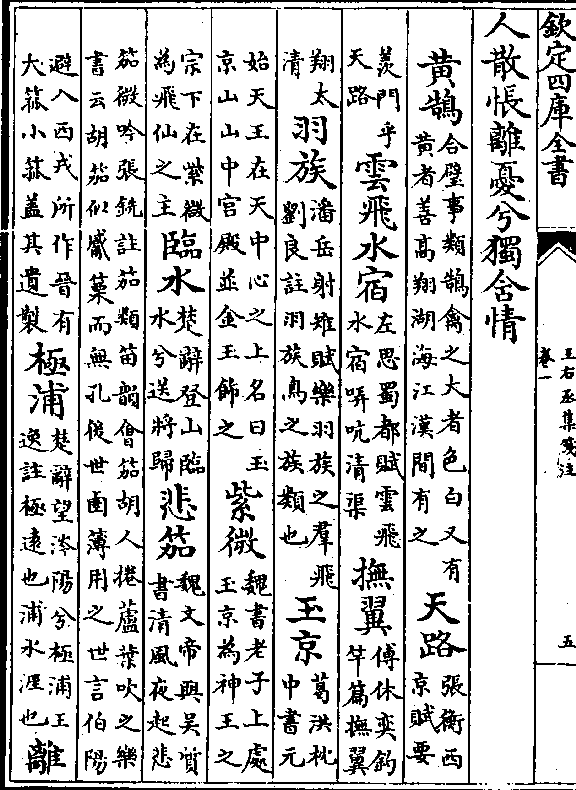 欽定四庫全書
王右丞集箋注
卷一
五
人散悵離憂兮獨含情
黃鵠合璧事類鵠禽之大者色白又有黃者善高翔湖海江漢間有之天路張衡西京賦要
羨門乎天路雲飛水宿左思蜀都賦雲飛水宿哢吭清渠撫翼傅休奕釣竿篇撫翼
翔太清羽族潘岳射雉賦樂羽族之羣飛劉良註羽族鳥之族類也玉京葛洪枕中書元
始天王在天中心之上名曰玉京山山中宮殿並金玉飾之紫微魏書老子上處玉京為神王之
宗下在紫微為飛仙之主臨水楚辭登山臨水兮送將歸悲笳魏文帝與吳質書清風夜起悲
笳微吟張銑註笳類笛韻會笳胡人捲蘆葉吹之樂書云胡笳似觱篥而無孔後世鹵簿用之世言伯陽
避入西戎所作晉有大箛小箛蓋其遺製極浦楚辭望涔陽兮極浦王逸註極遠也浦水涯也離